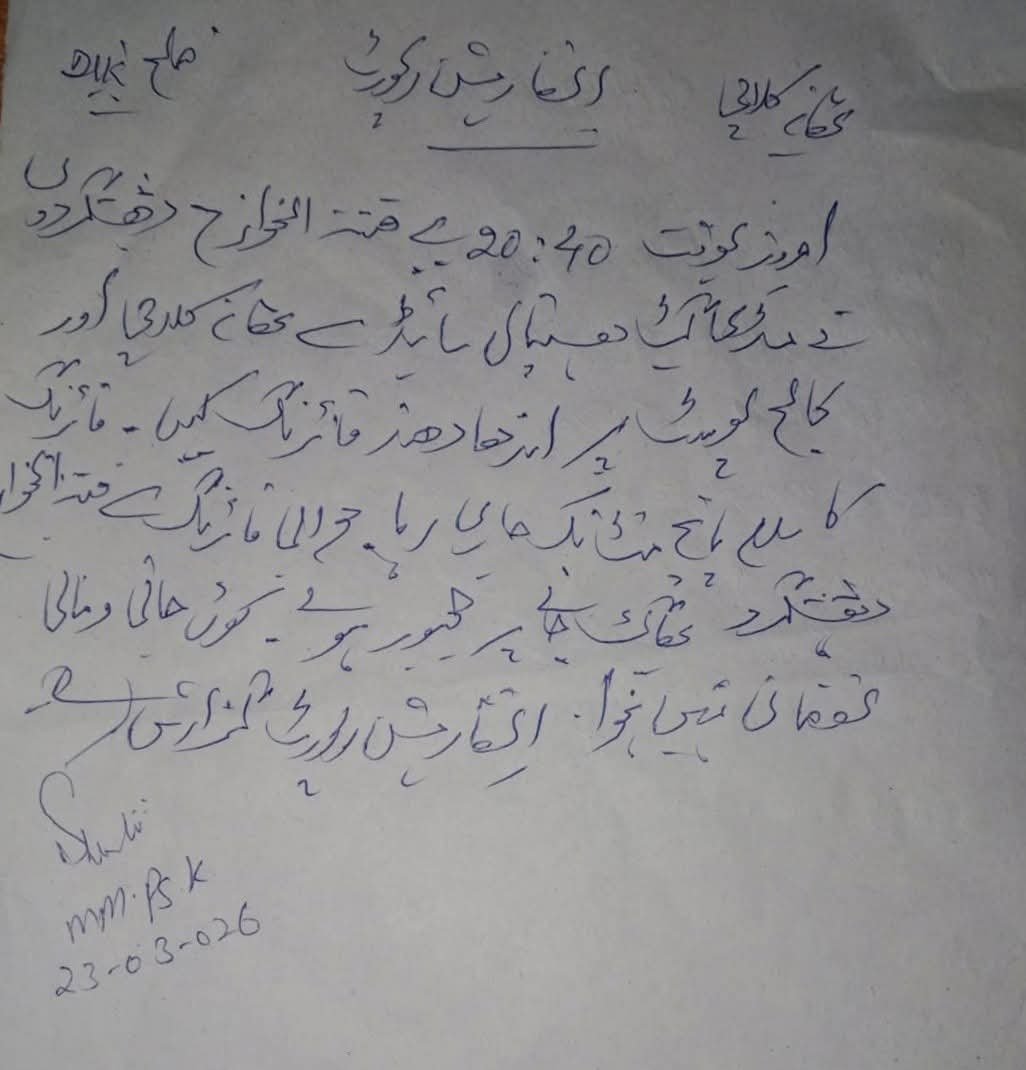 تھانہ کلاچی انفارمیشن رپورٹ ضلع DIK
امروز بوقت 20:40 بجے فتنہ الخوارج دہشتگردوں
نے ہسپتال سائیڈ سے تھانہ کلاچی اور
کالج پوسٹ پر اندھا دھند فائرنگ کیں۔ فائرنگ
کا سلسلہ پانچ منٹ تک جاری رہا۔ جوابی فائرنگ سے فتنہ الخوارج
دہشتگرد بھاگ جانے پر مجبور ہوئے۔ کوئی جانی و مالی
نقصان نہیں ہوا۔ انفارمیشن رپورٹ گزارش ہے
MM. PS K
23-03-026